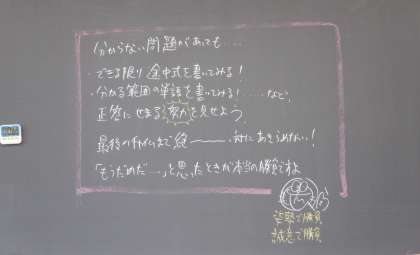 分からない問題があっても....
・できる限り途中式を書いてみる!
・分かる範囲の単語を書いてみる!.....など、
正答にせまる努力を見せよう。
最後のチャイムまで絶───対にあきらめない!
「もうだめだ…」と思ったときが本当の勝負ですよ
姿勢で勝負
誠意で勝負